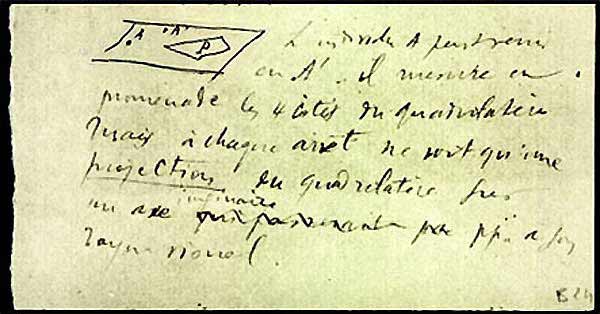 A A' P
L'individu A peut venir
en A'. il mesure en
promenade les 4 côtés du quadrilatère
mais à chaque arrêt ne voit qu'une
projection du quadrilatère sur
un axe imaginaire à son
rayon visuel.
B24